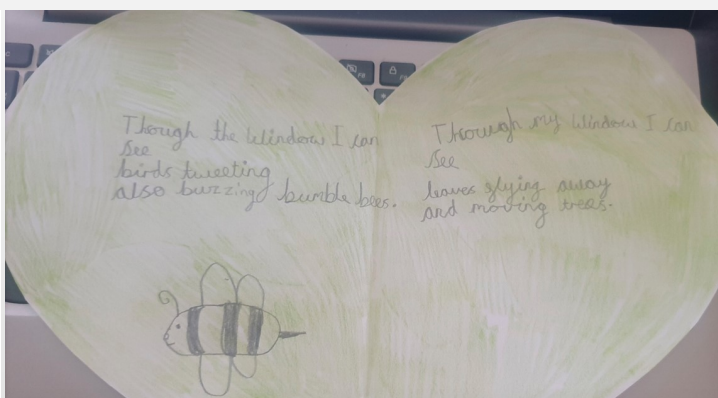 Though the Window I can
see
birds tweeting
also buzzing bumble bees.
Through my Window I can
see
leaves flying away
and moving trees.